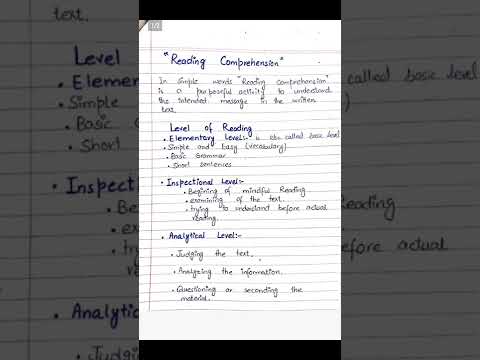 1/2
"Reading Comprehension"
In simple words "Reading comprehension"
is a purposeful activity to understand
the intended message in the written
text.
Level of Reading
• Elementary Level:- is also called basic level
• Simple and Easy (vocabulary)
• Basic Grammar
• Short sentences
• Inspectional Level:-
• Begining of mindful Reading
• examining of the text.
• trying to understand before actual
reading.
• Analytical Level:-
• Judging the text.
• Analyzing the information.
• Questioning or seconding the
material.
text.
Level
• Elemen
• Simple
• Basic
• Short
• Inspec
• Analytic
• Judg
called basic level
Reading
before actual